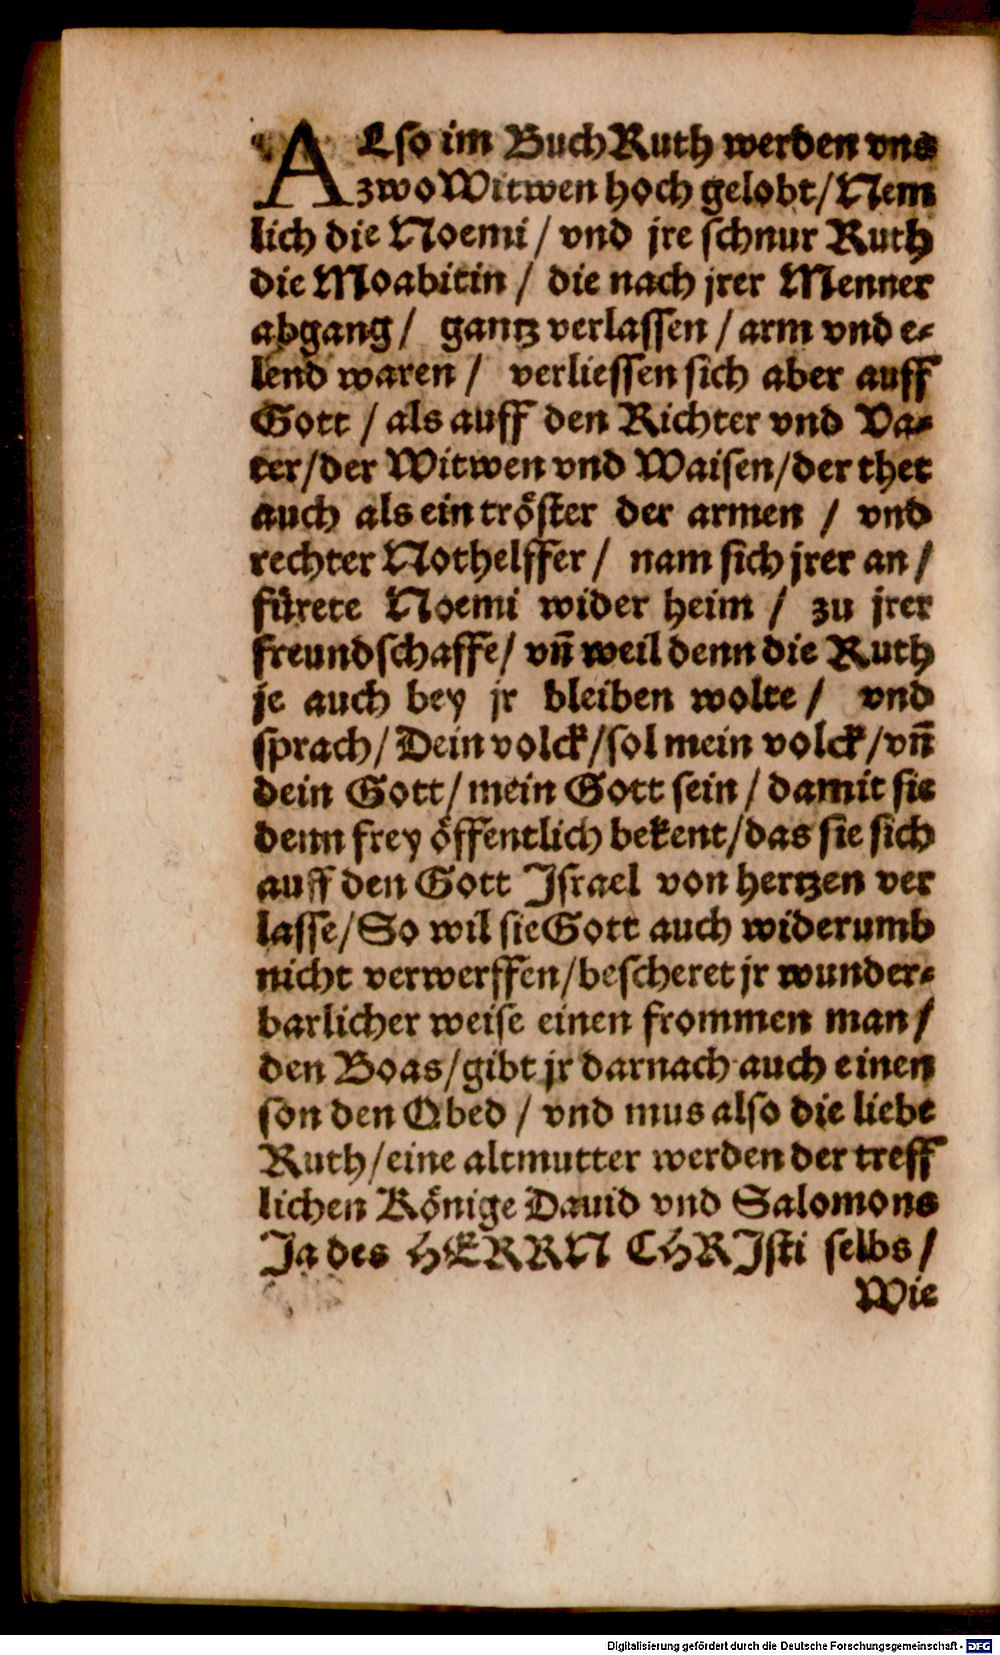 ALso im Buch Ruth werden vns
zwo Witwen hoch gelobt/ Nem
lich die Noemi/ vnd jre schnur Ruth
die Moabitin/ die nach jrer Menner
abgang/ gantz verlassen/ arm vnd e-
lend waren/ verliessen sich aber auff
Gott/ als auff den Richter vnd Va-
ter/ der Witwen vnd Waisen/ der thet
auch als ein tröster der armen/ vnd
rechter Nothelffer/ nam sich jrer an/
fürete Noemi wider heim/ zu jrer
freundschafft/ vn̄ weil denn die Ruth
je auch bey jr bleiben wolte/ vnd
sprach/ Dein volck/ sol mein volck/ vn̄
dein Gott/ mein Gott sein/ damit sie
denn frey öffentlich bekent/ das sie sich
auff den Gott Jsrael von hertzen ver
lasse/ So wil sie Gott auch widerumb
nicht verwerffen/ bescheret jr wunder-
barlicher weise einen frommen man/
den Boas/ gibt jr darnach auch einen
son den Obed/ vnd mus also die liebe
Ruth/ eine altmutter werden der treff
lichen Könige Dauid vnd Salomons
Ja des HERRN CHRJsti selbs/
Wie
Digitalisierung gefördert durch die Deutsche Forschungsgemeinschaft - DFG